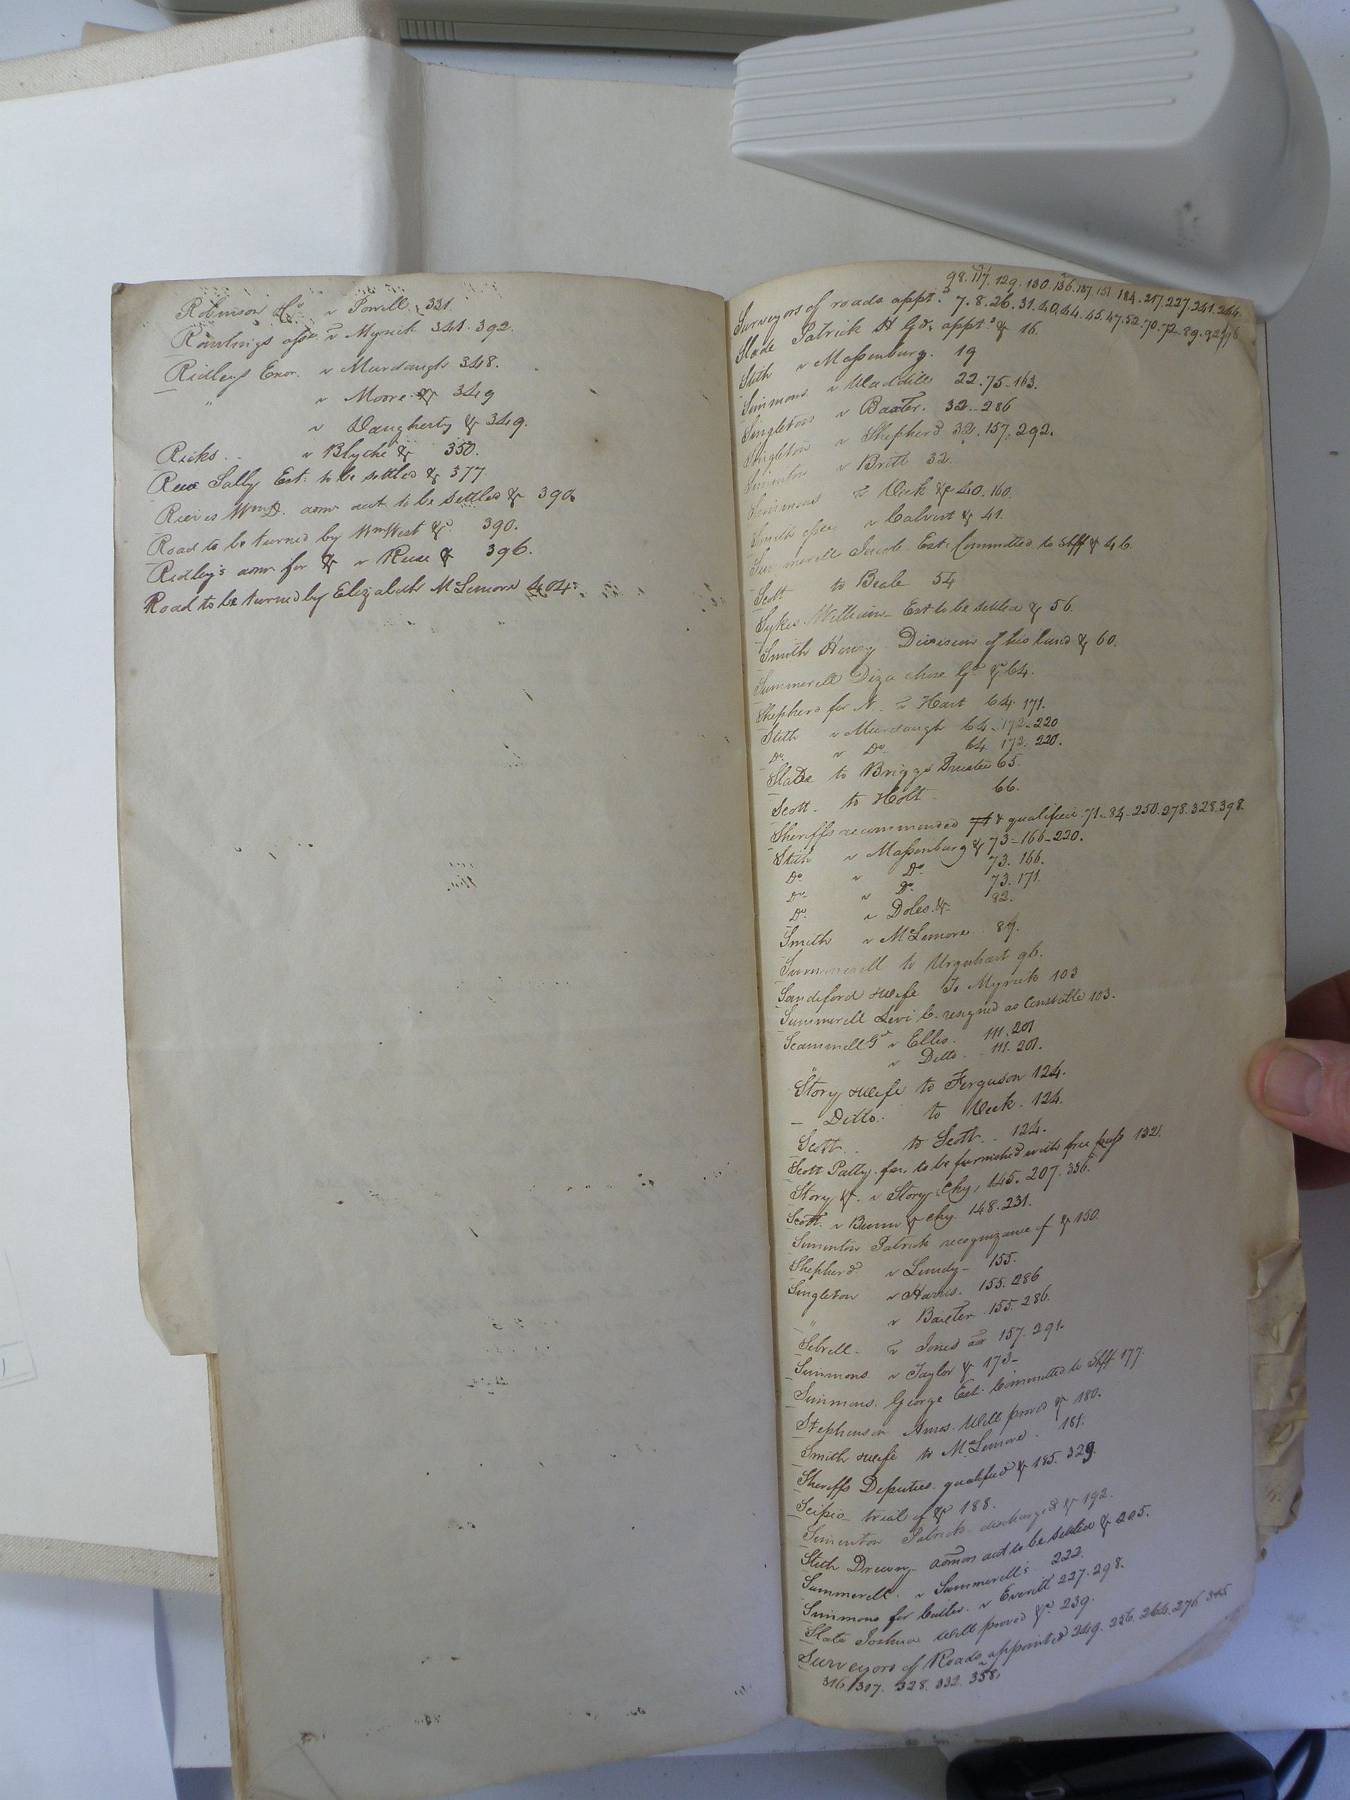 Robinson &c v Powell. 331.
Rawlings v Myrick 341. 392.
Ridley's Exor. v Murdaugh 348.
" v Moore &c 349
v Daugherty &c 349.
Ricks.. v Blythe &c 350.
Sally Est: to be settled &c 377
Rieves Wm D. acct to be settled & 390
Road to be turned by Wm West &c. 390.
Ridley's admr for &c v Reese & 396.
Road to be turned by Elizabeth McLemore 404.
98. 117. 129. 130 136. 137 151 184. 217 227. 241. 244.
Surveyors of roads appt.d 7. 8. 26. 31. 40. 44. 45. 47. 52. 70. 72. 89. 92
Slade Patrick H Gdn. appt.d & 16.
Stith v Massenburg. 19
Simmons v Waddill 22. 75. 163.
Singleton v Baxter. 32. 286
Singleton v Shepherd 32. 157. 292.
Simmons v Britt 32.
Simmons v Vick &c 40. 160.
Smith v Calvert & 41.
Summerell Jacob Est: Committed to Shff & 46.
Scott to Beale 54
Sykes William Est to be settled & 56.
Smith Henry Division of his land & 60.
Summerell Diza chose Gd & 64.
Shepherd for N. v Hart 64. 171.
Stith v Murdaugh 64. 172. 220
Do. v Do. 64. 172. 220.
Slade to Briggs Trustee 65.
Scott. to Holt. 66.
Sheriffs recommended & qualified. 71. 84. 250. 278. 328. 398.
Stith v Massenburg & 73. 166. 220.
Do. v Do. 73. 166.
Do. v Do. 73. 171.
Do. v Doles &c 82.
Smith v McLemore 89.
Summerell to Urquhart 96.
Sandiford & wife To Myrick 103
Summerell Levi C. resigned as Constable 103.
Scammell Gd v Ellis. 111. 201
" v Ditto. 111. 201.
Story & wife to Ferguson 124.
Ditto. to Vick. 124.
Scott.. to Scott.. 124.
Scott Patty. to be furnished with free pass 132.
Story &c. v Story Chy, 145. 207. 336.
Scott. v Bunn & Chy 148. 231.
Siminton Patrick recognizance of & 150.
Shepherd v Lundy 155.
Singleton v Harris. 155. 286
" v Baxter 155. 286.
Sebrell. v Jones 157. 291.
Simmons v Taylor & 173
Simmons. George Est. Committed to Shff 177.
Stephenson Amos. Will proved & 180.
Smith & wife to McLemore. 181.
Sheriffs Deputies qualified & 185. 329.
Scipio trial of &c 188.
Siminton Patrick discharged & 192.
Stith Drewry admrs acct to be settled & 205.
Summerell. v Summerell's 222.
Simmons for Cutler. v Everitt 227. 298.
Slate Joshua Will proved &c. 239.
Surveyors of Roads appointed 249. 256. 264. 276. 315
316. 317. 328. 332. 358.